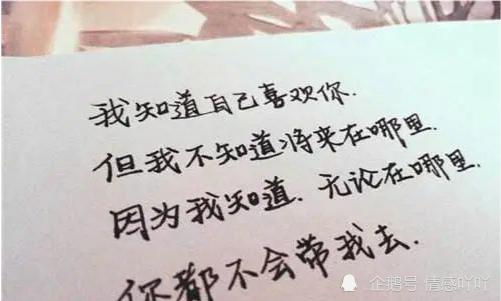 我知道自己喜欢你.
但我不知道将来在哪里.
因为我知道.无论在哪里.
你都不会带我去.
企鹅号 情感吖吖